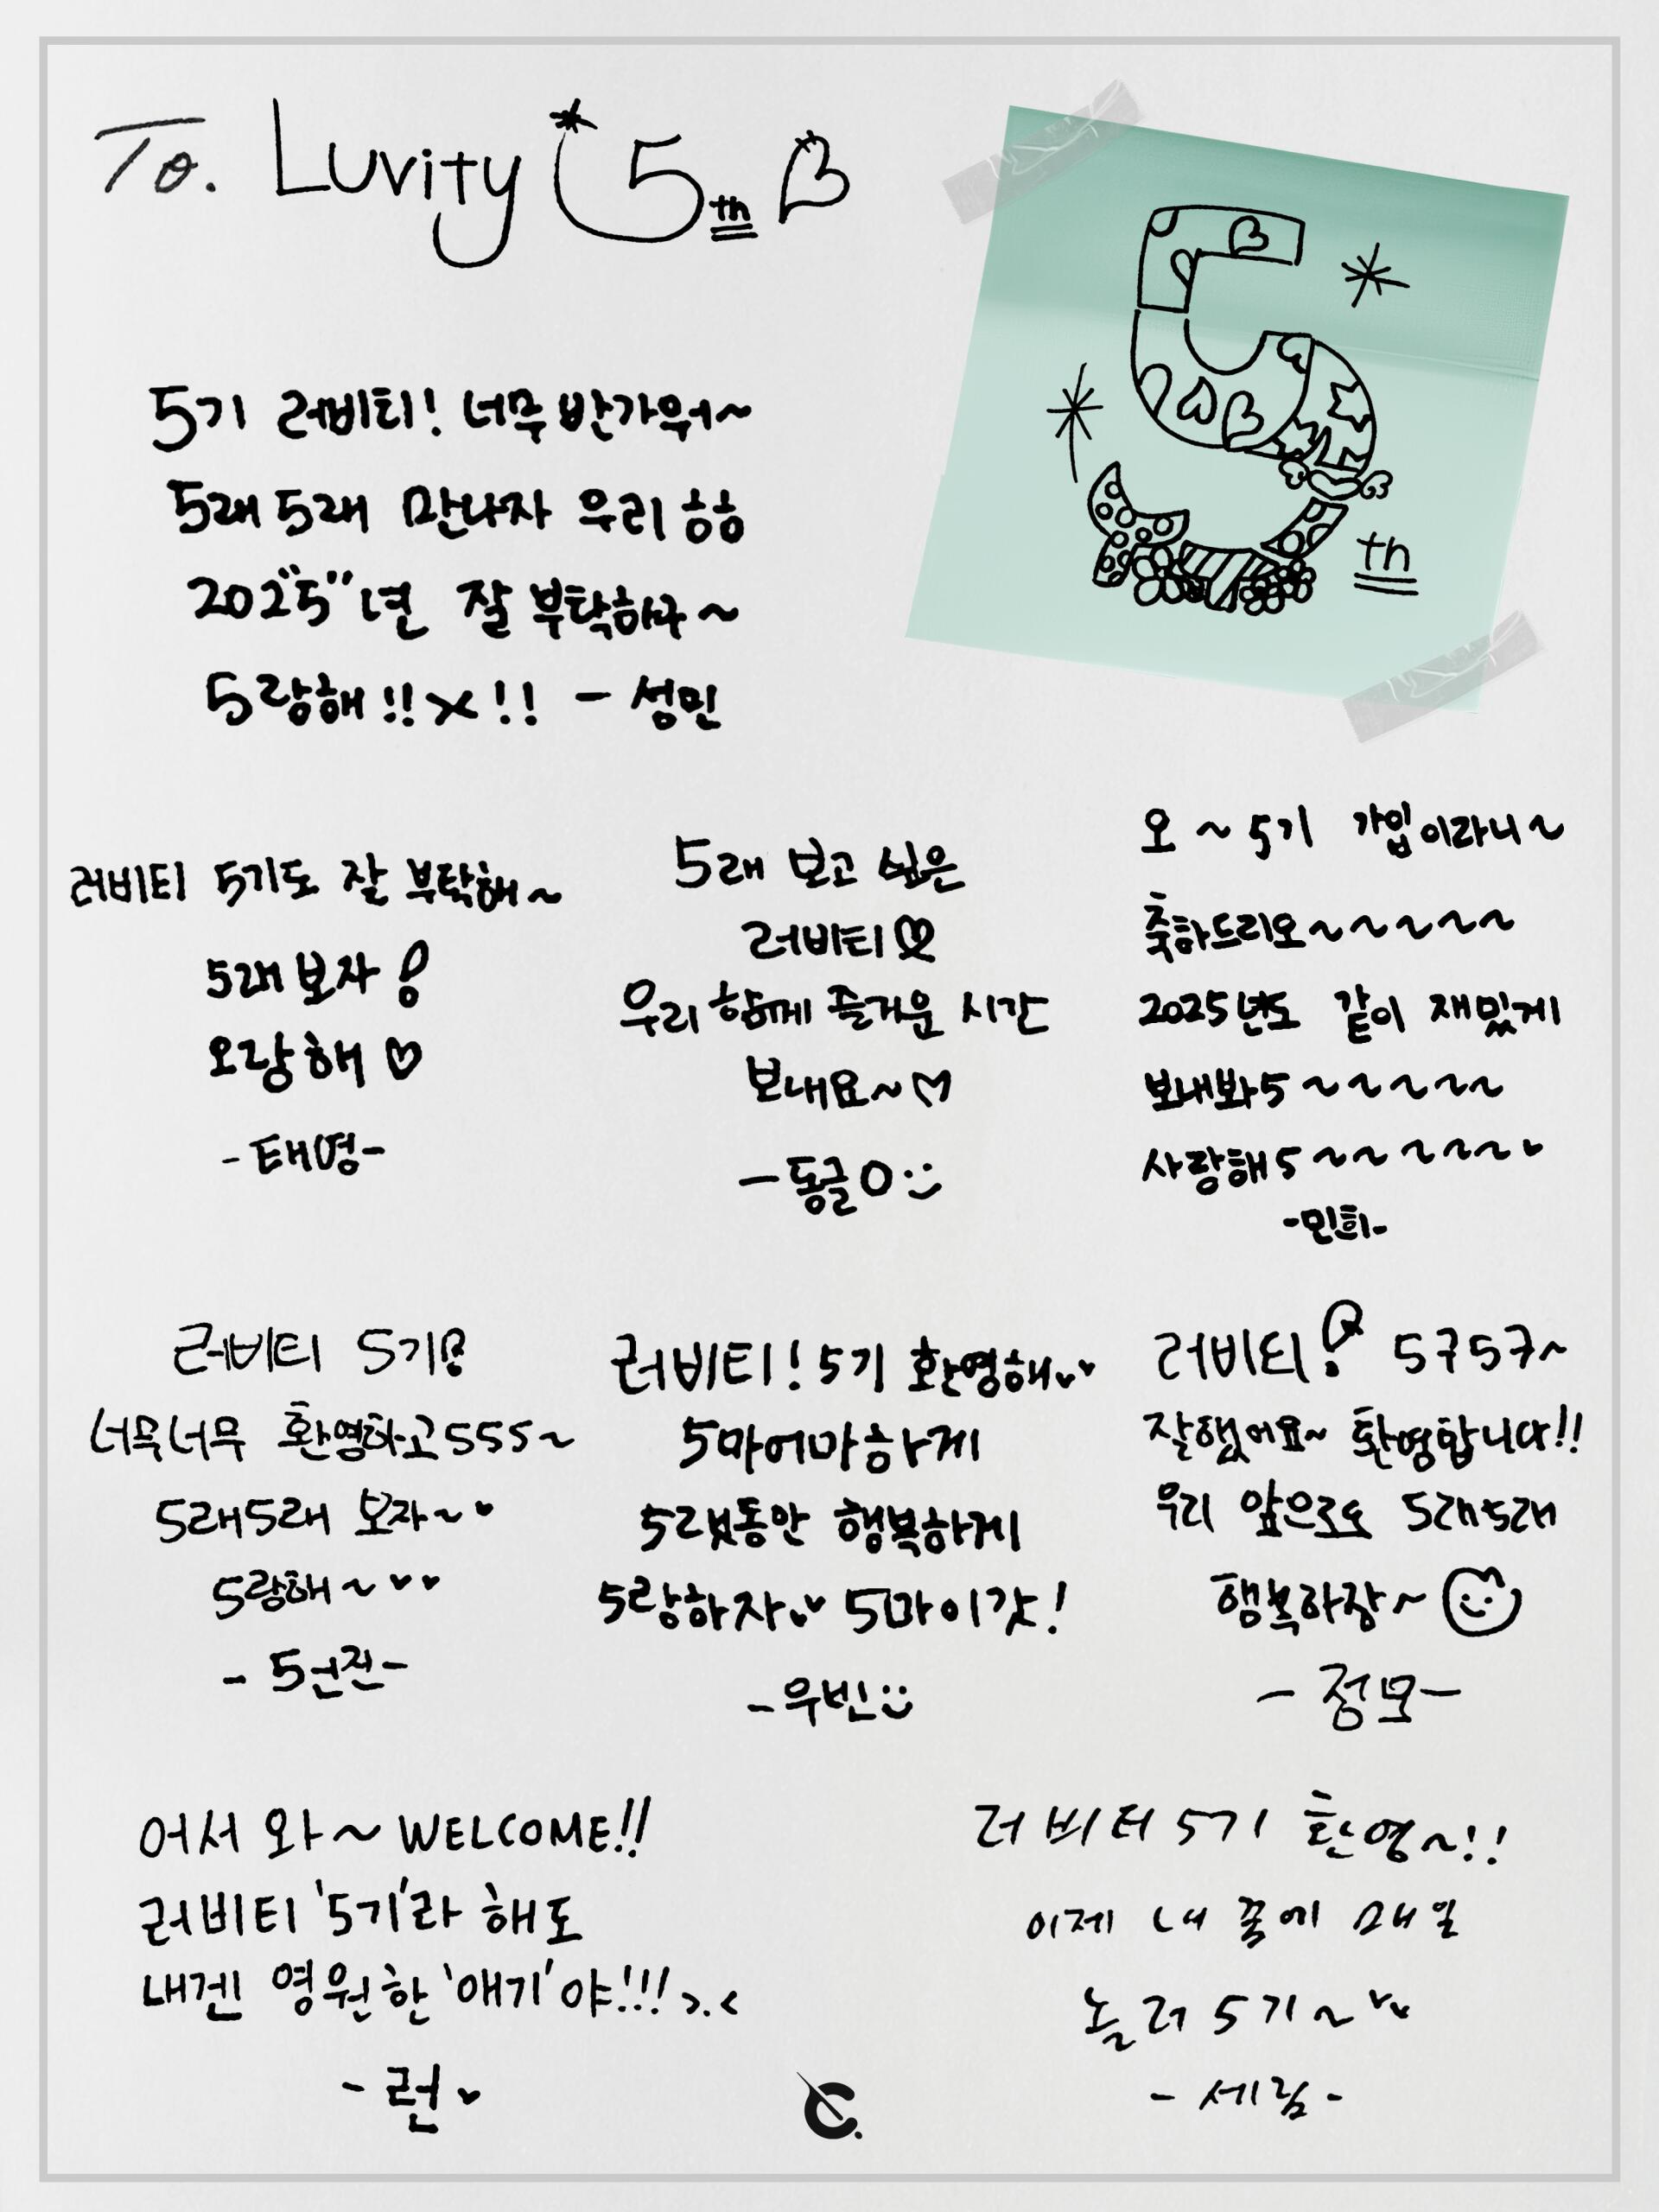 To. Luvity 5th
5th
5기 러비티! 너무 반가워~
5래5래 만나자 우리 ㅎㅎ
202"5"년 잘 부탁하구~
5랑해!!×!! - 성민
러비티 5기도 잘 부탁해~
5래보자!
오랑해♡
-태영-
5래 보고 싶은
러비티♡
우리 함께 즐거운 시간
보내요~♡
-동글O:)
오~5기 가입이라니~
축하드리오~~~~~
2025년도 같이 재밌게
보내봐5~~~~~
사랑해5~~~~~~♥
-민희-
러비티 5기!
너무너무 환영하고555~
5래5래 보자~♥
5랑해~♥♥
-5원진-
러비티! 5기 환영해♥♥
5마어마하게
5랫동안 행복하게
5랑하자♥♥ 5마이갓!
-우빈:)
러비티! 5구5구~
잘했어요~ 환영합니다!!
우리 앞으로도 5래5래
행복하장~
-정모-
어서 와~ WELCOME!!
러비티 '5기'라 해도
내겐 영원한 '애기'야!!! >.<
-런♥
러비티 5기 환영~!!
이제 내 꿈에 매일
놀러 5기~♥♥
-세림-